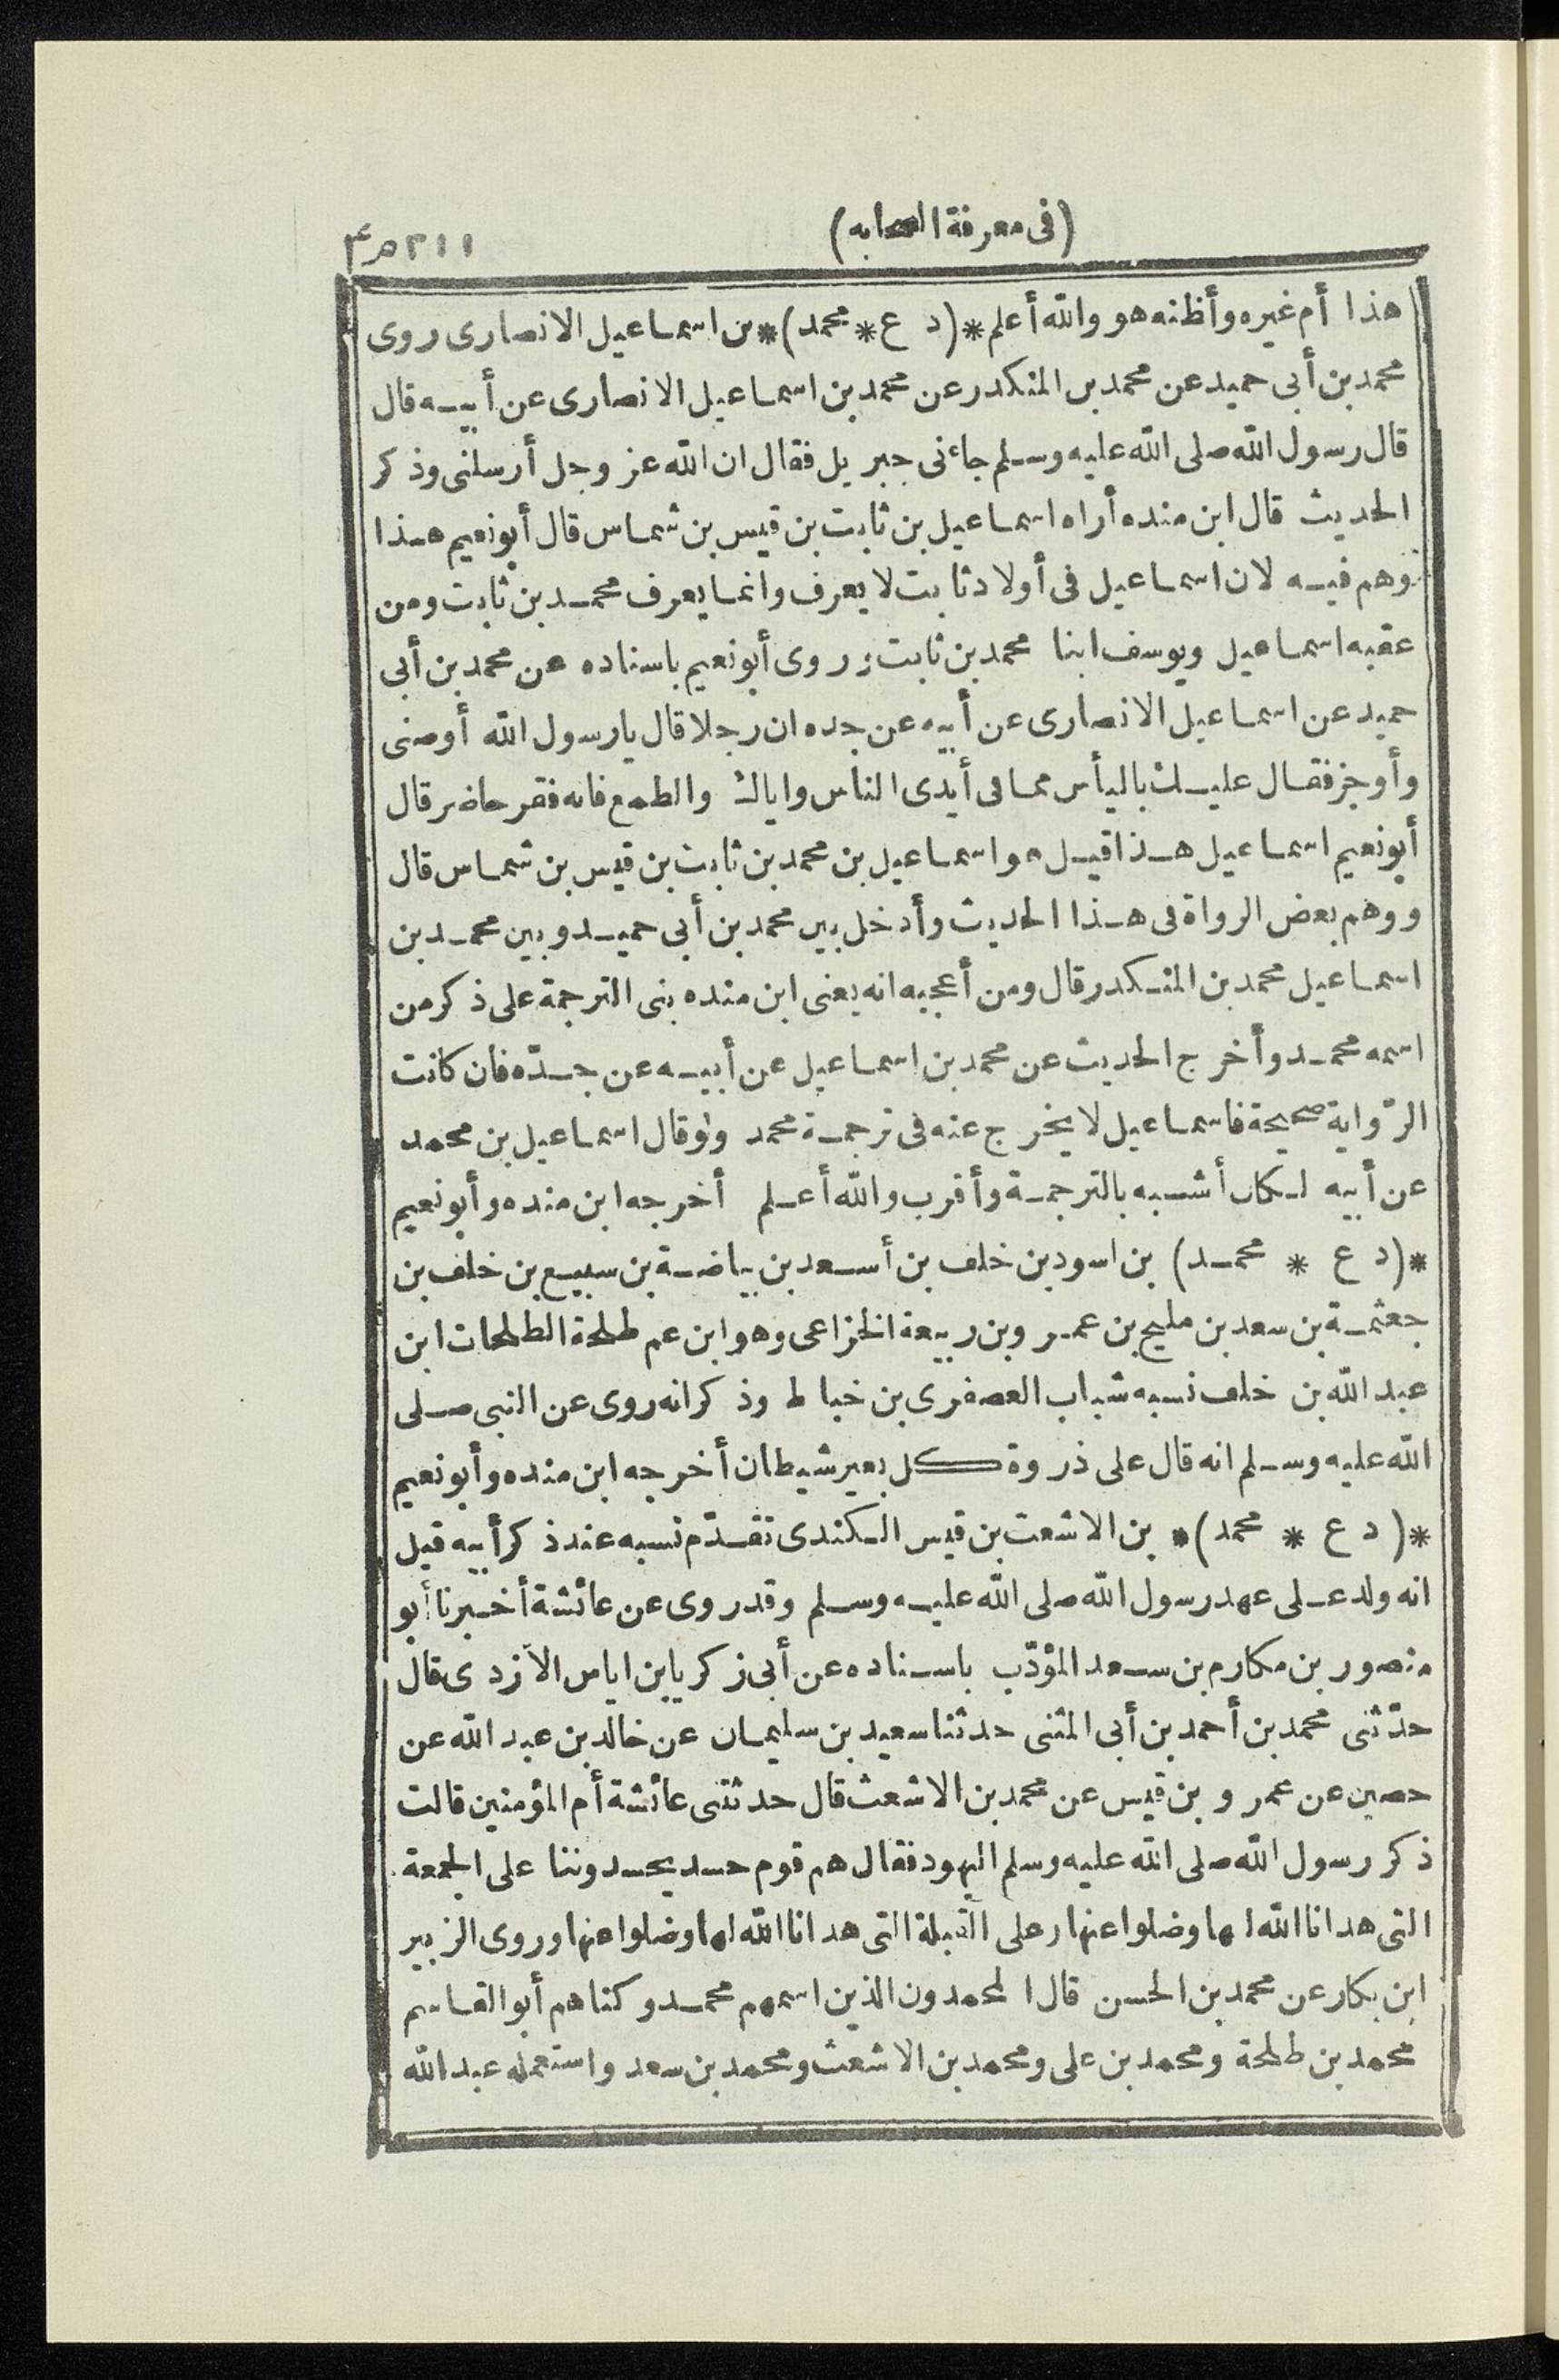 (فى معرفة الصحابه)
٣١١
هذا أم غيره وأظنه هو والله أعلم *(د ع * محمد)* بن اسماعيل الانصارى روى
محمد بن أبى حميد عن محمد بن المنكدر عن محمد بن اسماعيل الانصارى عن أبيه قال
قال رسول الله صلى الله عليه وسلم جاءنى جبريل فقال ان الله عز وجل أرسلنى وذكر
الحديث قال ابن منده أراه اسماعيل بن ثابت بن قيس بن شماس قال أبو نعيم هذا
وهم فيه لان اسماعيل فى أولاد ثابت لا يعرف وانما يعرف محمد بن ثابت ومن
عقبه اسماعيل ويوسف ابنا محمد بن ثابت وروى أبو نعيم باسناده عن محمد بن أبى
حميد عن اسماعيل الانصارى عن أبيه عن جده ان رجلا قال يا رسول الله أوصنى
وأوجز فقال عليك باليأس مما فى أيدى الناس واياك والطمع فانه فقر حاضر قال
أبو نعيم اسماعيل هذا قيل هو اسماعيل بن محمد بن ثابت بن قيس بن شماس قال
ووهم بعض الرواة فى هذا الحديث وأدخل بين محمد بن أبى حميد وبين محمد بن
اسماعيل محمد بن المنكدر قال ومن أعجبه انه يعنى ابن منده بنى الترجمة على ذكر من
اسمه محمد وأخرج الحديث عن محمد بن اسماعيل عن أبيه عن جدّه فان كانت
الرّواية صحيحة فاسماعيل لا يخرج عنه فى ترجمة محمد ولو قال اسماعيل بن محمد
عن أبيه لكان أشبه بالترجمة وأقرب والله أعلم أخرجه ابن منده وأبو نعيم
*(د ع * محمد) بن اسود بن خلف بن أسعد بن بياضة بن سبيع بن خلف بن
جعثمة بن سعد بن مليح بن عمرو بن ربيعة الخزاعى وهو ابن عم طلحة الطلحات ابن
عبد الله بن خلف نسبه شباب العصفرى بن خياط وذكر انه روى عن النبى صلى
الله عليه وسلم انه قال على ذروة كل بعير شيطان أخرجه ابن منده وأبو نعيم
*(د ع * محمد)* بن الاشعث بن قيس الكندى تقدّم نسبه عند ذكر أبيه قيل
انه ولد على عهد رسول الله صلى الله عليه وسلم وقد روى عن عائشة أخبرنا أبو
منصور بن مكارم بن سعد المؤدّب باسناده عن أبى زكريا بن اياس الأزدى قال
حدّثنى محمد بن أحمد بن أبى المثنى حدثنا سعيد بن سليمان عن خالد بن عبد الله عن
حصين عن عمرو بن قيس عن محمد بن الاشعث قال حدثتنى عائشة أم المؤمنين قالت
ذكر رسول الله صلى الله عليه وسلم اليهود فقال هم قوم حسد يحسدوننا على الجمعة
التى هدانا الله لها وضلوا عنها وعلى القبلة التى هدانا الله لها وضلوا عنها وروى الزبير
ابن بكار عن محمد بن الحسن قال المحمدون الذين اسمهم محمد وكناهم أبو القاسم
محمد بن طلحة ومحمد بن على ومحمد بن الاشعث ومحمد بن سعد واستعمله عبد الله